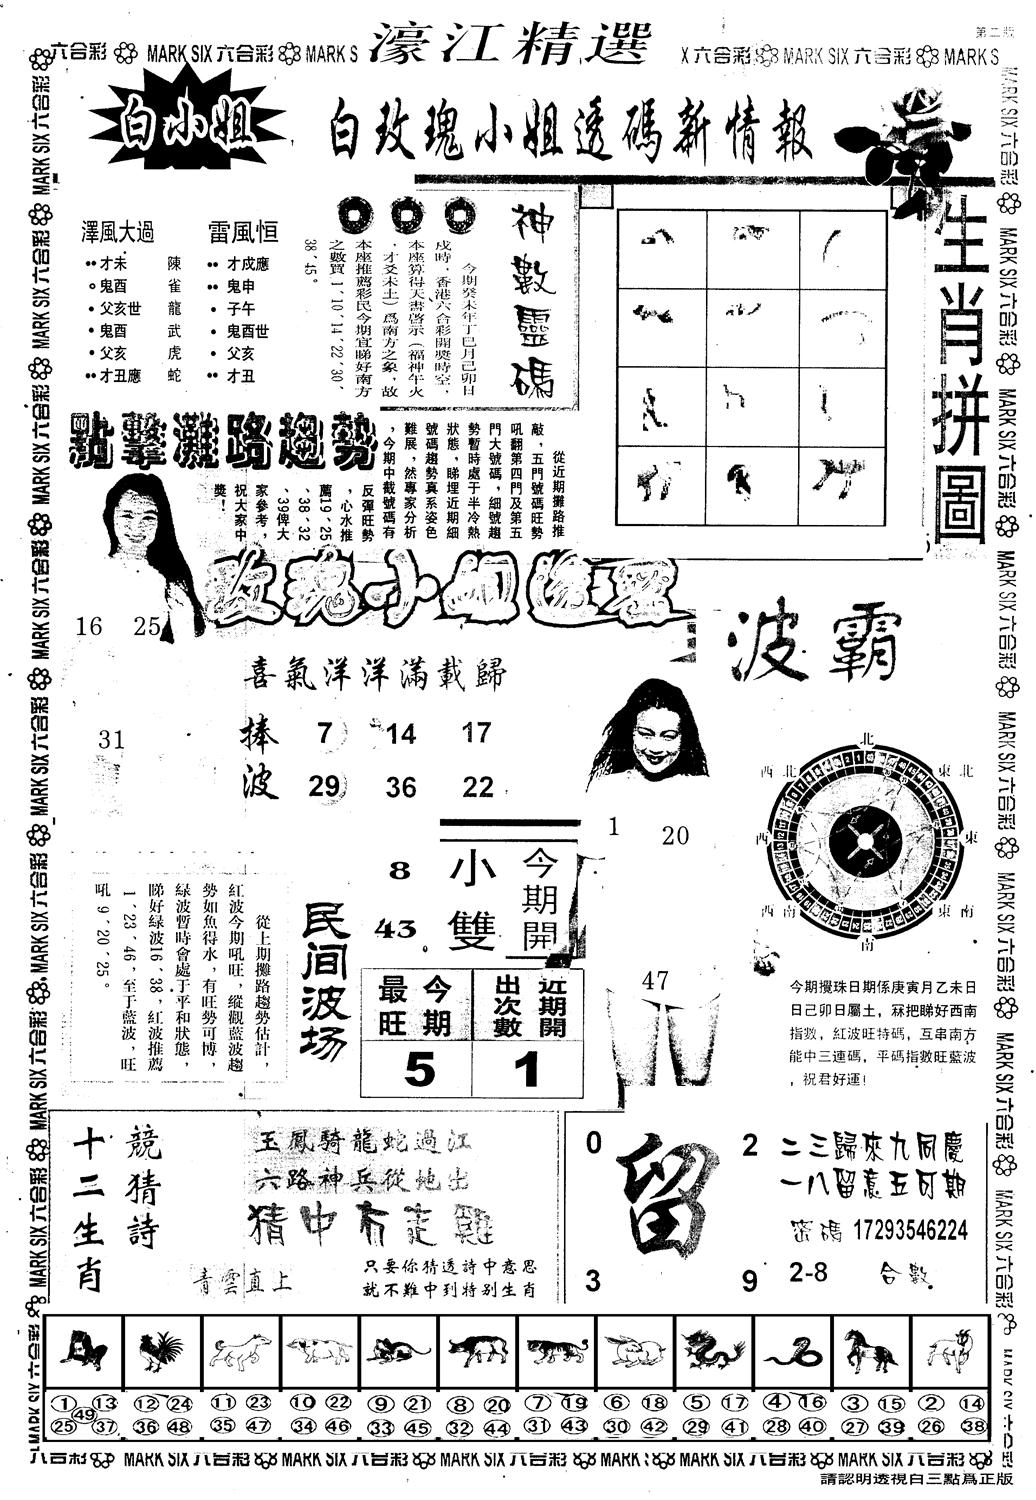 濠江精選
第二版
六合彩 MARK SIX 六合彩 MARK S
X 六合彩 MARK SIX 六合彩 MARK S
白小姐
白玫瑰小姐透碼新情報
澤風大過
才未 陳
鬼酉 雀
父亥世 龍
鬼酉 武
父亥 虎
才丑應 蛇
雷風恒
才戍應
鬼申
子午
鬼酉世
父亥
才丑
神數靈碼
今期癸未年丁巳月己卯日
戍時，香港六合彩開獎時空，
本座算得天書啓示（福神午火
，才爻未土）爲南方之象，故
本座推薦彩民今期宜睇好南方
之數買1、10、14、22、30、
38、45。
生肖拼圖
點擊灘路趨勢
從近期攤路推
敲，五門號碼旺勢
吼翻第四門及第五
門大號碼，細號趨
勢暫時處于半冷熱
狀態，睇埋近期細
號碼趨勢真系姿色
難展，然專家分析
，今期中截號碼有
反彈旺勢
，心水推
薦19、25
、38、32
、39俾大
家參考，
祝大家中
獎！
16 25
31
玫瑰小姐透密
喜氣洋洋滿載歸
捧波
7 14 17
29 36 22
波霸
1 20
47
北
東北
東
東南
南
西南
西
西北
今期攪珠日期係庚寅月乙未日
日己卯日屬土，冧把睇好西南
指數，紅波旺特碼，互串南方
能中三連碼，平碼指數旺藍波
，祝君好運！
從上期攤路趨勢估計，
紅波今期吼旺，縱觀藍波趨
勢如魚得水，有旺勢可博，
綠波暫時會處于平和狀態，
睇好緑波16、38，紅波推薦
1、23、46，至于藍波，旺
吼9、20、25。
民间波场
8 43
小雙
今期開
今期最旺
近期開出次數
5 1
十二生肖
競猜詩
玉鳳騎龍蛇過江
六路神兵從地出
猜中有走雞
青雲直上
只要你猜透詩中意思
就不難中到特别生肖
0 2
留
3 9
二三歸來九同慶
一八留意五可期
密碼 17293546224
2-8 合數
1 13 49 25 37
12 24 36 48
11 23 35 47
10 22 34 46
9 21 33 45
8 20 32 44
7 19 31 43
6 18 30 42
5 17 29 41
4 16 28 40
3 15 27 39
2 14 26 38
六合彩 MARK SIX 六合彩 MARK SIX 六合彩 MARK SIX 六合彩 MARK SIX 六合彩 MARK SIX 六合彩
請認明透視白三點爲正版